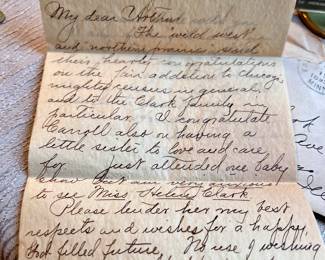 My dear
"The wild west
and northern prairie" send
their hearty congratulations
on the fair addition to Chicago's
mighty census in general.
and to the Clark family in
particular. I congratulate
Carroll also on having a
little sister to love and care
for just attended one baby
show but am very anxious
to see Miss Helen Clark
Please tender her my best
respects and wishes for a happy,
God filled future. No use of wishing